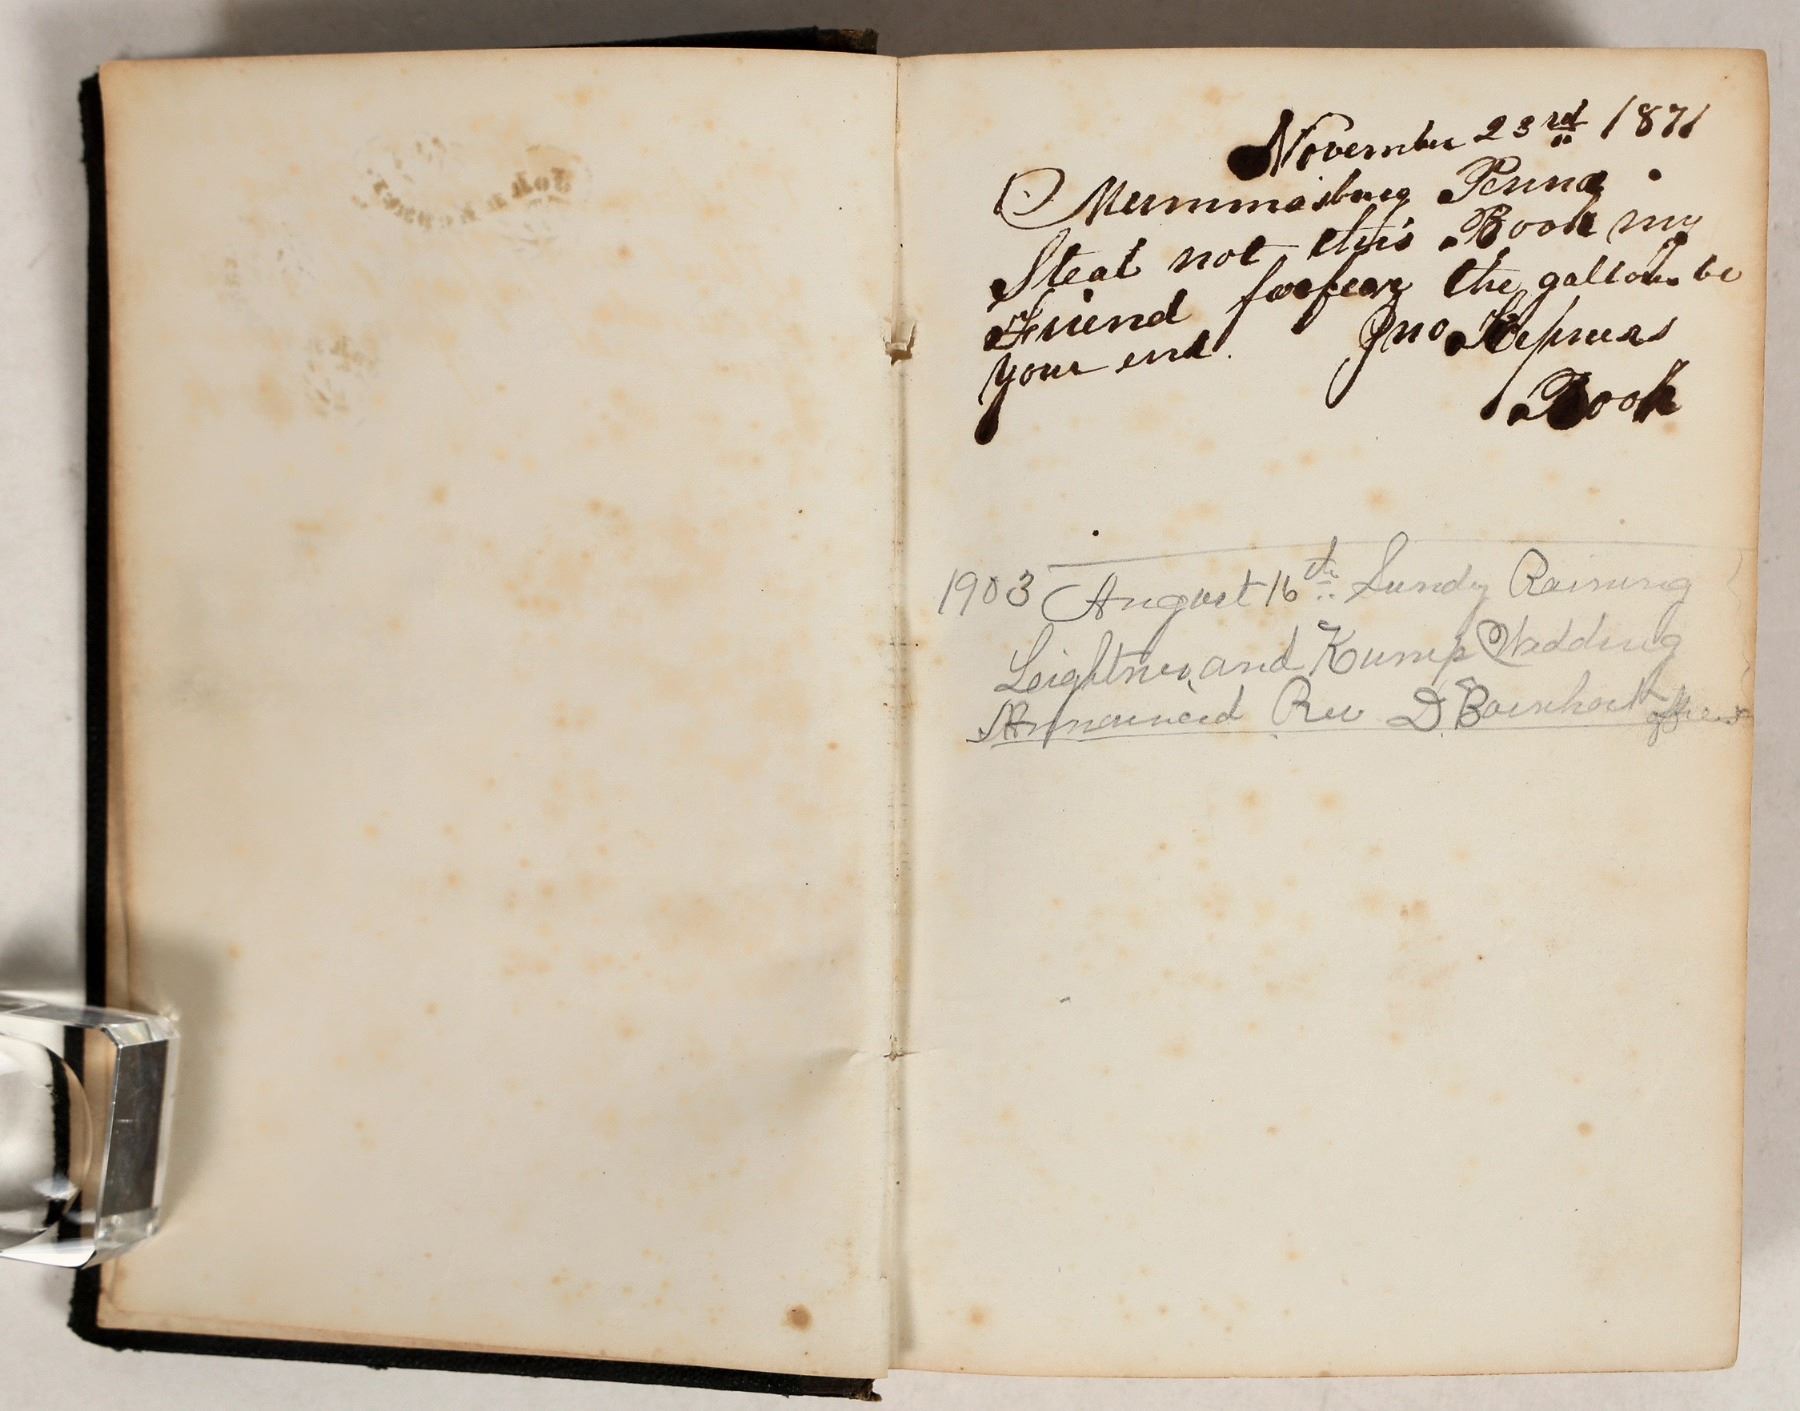 November 23rd 1871
Mummasburg Penna
Steal not this Book my
Friend for fear the gallows be
your end. Jno
Book
1903 August 16th Sundy Raining
Leightner and Kump Wedding
Announced Rev D